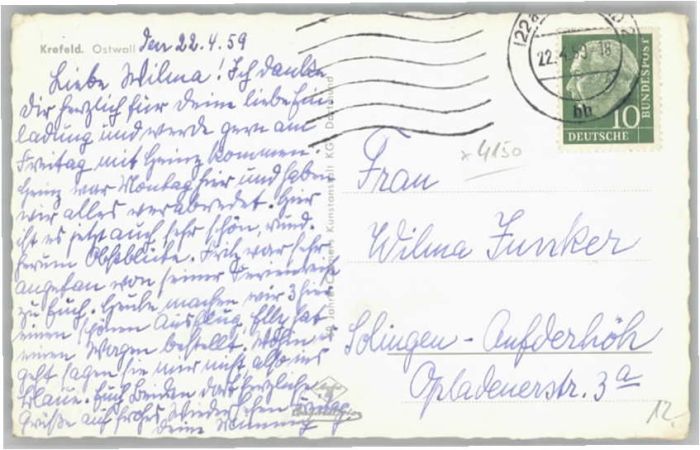 Krefeld. Ostwall den 22.4.59
Liebe Wilma! Ich danke
Dir herzlich für Deine liebe Ein
ladung und werde gern am
Freitag mit Heinz kommen.
Heinz war Montag hier und haben
wir alles verabredet. Hier
ist es jetzt auch sehr schön, rund
herum Obstblüte. Fritz war sehr
angetan von seiner
zu Euch. Heute machen wir 3 hier
einen schönen Ausflug, Elle hat
einen Wagen bestellt. Wohin es
geht sagen sie mir nicht also ins
Blaue. Euch Beiden das herzliche
Grüße auf frohes Wiedersehen
Deine
Kunstanstalt KG Dortmund
22.4.59-18
bb
10
DEUTSCHE
BUNDESPOST
x 4150
Frau
Wilma Junker
Solingen-Aufderhöh
Opladenerstr. 3a
12.